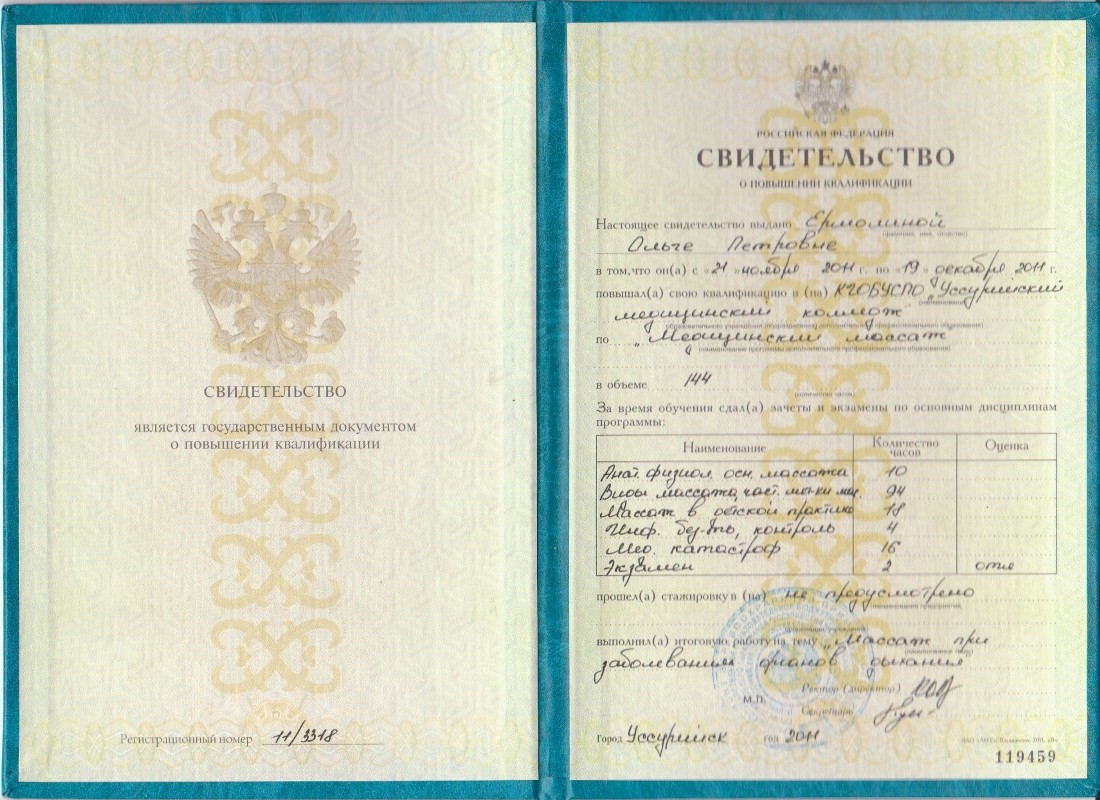 СВИДЕТЕЛЬСТВО
является государственным документом
о повышении квалификации
Регистрационный номер 11/3318
РОССИЙСКАЯ ФЕДЕРАЦИЯ
СВИДЕТЕЛЬСТВО
О ПОВЫШЕНИИ КВАЛИФИКАЦИИ
Настоящее свидетельство выдано Ермолиной
(фамилия, имя, отчество)
Ольге Петровне
в том, что он(а) с «21» ноября 2011 г. по «19» декабря 2011 г.
повышал(а) свою квалификацию в (на) КГОБУСПО „Уссурийский
(наименование)
медицинский колледж
(образовательного учреждения (подразделения) дополнительного профессионального образования)
по „Медицинский массаж
(наименование программы дополнительного профессионального образования)
в объеме 144
(количество часов)
За время обучения сдал(а) зачеты и экзамены по основным дисциплинам
программы:
Наименование Количество часов Оценка
Анат. физиол. осн. массажа 10
Виды массажа, част. мет-ки мас. 94
Массаж в детской практике 18
Инф. без-ть, контроль 4
Мед. катастроф 16
Экзамен 2 отл
прошел(а) стажировку в (на) не предусмотрено
(наименование предприятия,
организации, учреждения)
выполнил(а) итоговую работу на тему „Массаж при
(наименование темы)
заболеваниях органов дыхания
Ректор (директор)
М.П.
Секретарь
Город Уссурийск год 2011
119459